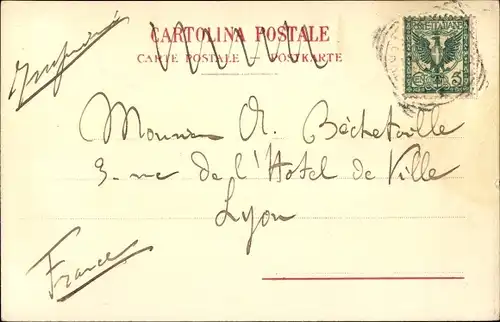 CARTOLINA POSTALE
CARTE POSTALE — POSTKARTE
Imprimé
POSTE ITALIANE
5
Monsieur A. Béchetoille
3. rue de l'Hotel de Ville
Lyon
France